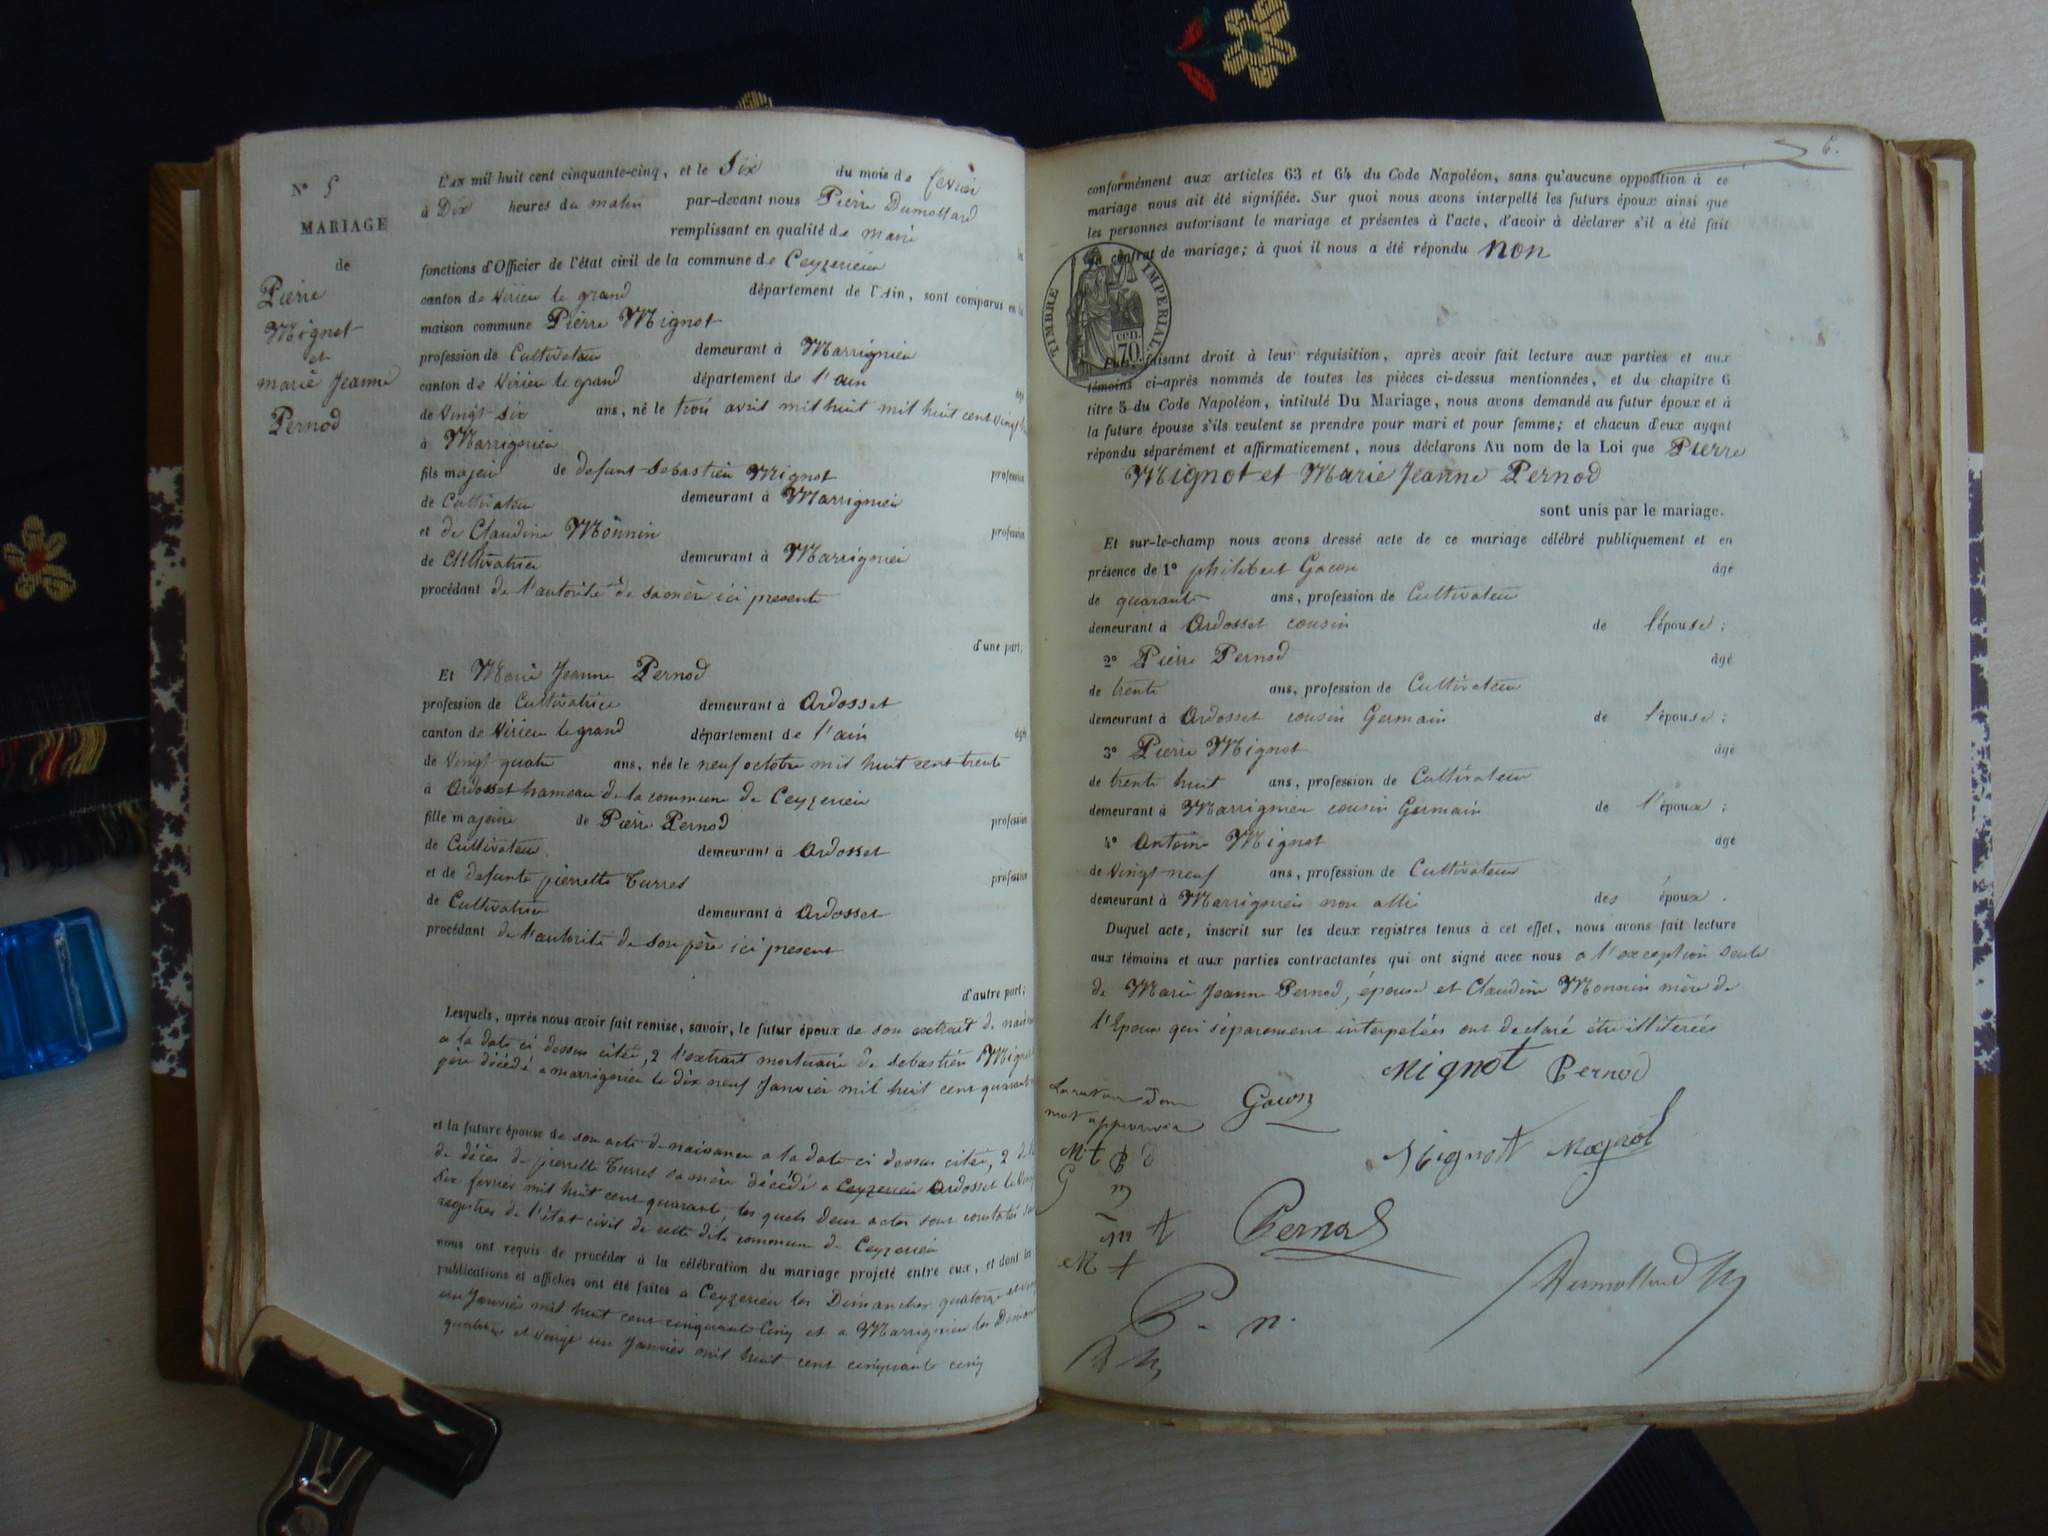 N° 5
MARIAGE
de
Pierre
Mignot
et
marie Jeanne
Pernod
L'AN mil huit cent cinquante-cinq, et le Six du mois de fevrier
à Dix heures du matin par-devant nous Pierre Dumollard
remplissant en qualité de maire les
fonctions d'Officier de l'état civil de la commune de Ceyzerieu
canton de Virieu le grand département de l'Ain, sont comparus en la
maison commune Pierre Mignot
profession de Cultivateur demeurant à Marrignieu
canton de Virieu le grand département de l'ain âgé
de Vingt Six ans, né le trois avril mil huit mil huit cent vingt
à Marrignieu
fils majeur de defunt Sebastien Mignot profession
de Cultivateur demeurant à Marrignieu
et de Claudine Monnin profession
de Cultivatrice demeurant à Marrignieu
procédant de l'autorité de sa mère ici presente
d'une part;
Et Marie Jeanne Pernod
profession de Cultivatrice demeurant à Ardosset
canton de Virieu le grand département de l'ain âgée
de Vingt quatre ans, née le neuf octobre mil huit cent trente
à Ardosset hameau de la commune de Ceyzerieu
fille majeure de Pierre Pernod profession
de Cultivateur demeurant à Ardosset
et de defunte pierrette Turrel profession
de Cultivatrice demeurant à Ardosset
procédant de l'autorité de son père ici present
d'autre part;
Lesquels, après nous avoir fait remise, savoir, le futur époux de son extrait de
a la date ci dessus citée, 2 l'extrait mortuaire de sebastien Mignot
père décédé a marrignieu le dix neuf Janvier mil huit cent
et la future épouse de son acte de naissance a la date ci dessus citée, 2
de décès de pierrette Turrel sa mère décédé a Ceyzerieu Ardosset le
Six fevrier mil huit cent quarante, les quels deux actes sont constatés
registres de l'état civil de cette dite commune de Ceyzerieu
nous ont requis de procéder à la célébration du mariage projeté entre eux, et dont les
publications et affiches ont été faites a Ceyzerieu les Dimanches quatorze et
un Janvier mil huit cent cinquante Cinq et a Marrignieu les
quatorze et vingt un Janvier mil huit cent cinquante cinq
6.
conformément aux articles 63 et 64 du Code Napoléon, sans qu'aucune opposition à ce
mariage nous ait été signifiée. Sur quoi nous avons interpellé les futurs époux ainsi que
les personnes autorisant le mariage et présentes à l'acte, d'avoir à déclarer s'il a été fait
contrat de mariage; à quoi il nous a été répondu non
TIMBRE IMPERIAL
70 cen.
faisant droit à leur réquisition, après avoir fait lecture aux parties et aux
témoins ci-après nommés de toutes les pièces ci-dessus mentionnées, et du chapitre 6
titre 5 du Code Napoléon, intitulé Du Mariage, nous avons demandé au futur époux et à
la future épouse s'ils veulent se prendre pour mari et pour femme; et chacun d'eux ayant
répondu séparément et affirmativement, nous déclarons Au nom de la Loi que Pierre
Mignot et Marie Jeanne Pernod
sont unis par le mariage.
Et sur-le-champ nous avons dressé acte de ce mariage célébré publiquement et en
présence de 1° philibert Gacon âgé
de quarante ans, profession de Cultivateur
demeurant à Ardosset cousin de l'épouse;
2° Pierre Pernod âgé
de trente ans, profession de Cultivateur
demeurant à Ardosset cousin Germain de l'épouse;
3° Pierre Mignot âgé
de trente huit ans, profession de Cultivateur
demeurant à Marrignieu cousin Germain de l'époux;
4° Antoine Mignot âgé
de Vingt neuf ans, profession de Cultivateur
demeurant à Marrignieu non allié des époux.
Duquel acte, inscrit sur les deux registres tenus à cet effet, nous avons fait lecture
aux témoins et aux parties contractantes qui ont signé avec nous a l'exception seule
de Marie Jeanne Pernod, épouse et Claudine Monnin mère de
l'Epoux qui séparement interpelées ont declaré être illiterées
Mignot Pernod
mot approuvée
Gacon
Mignot Mignot
Pernod
Dumollard